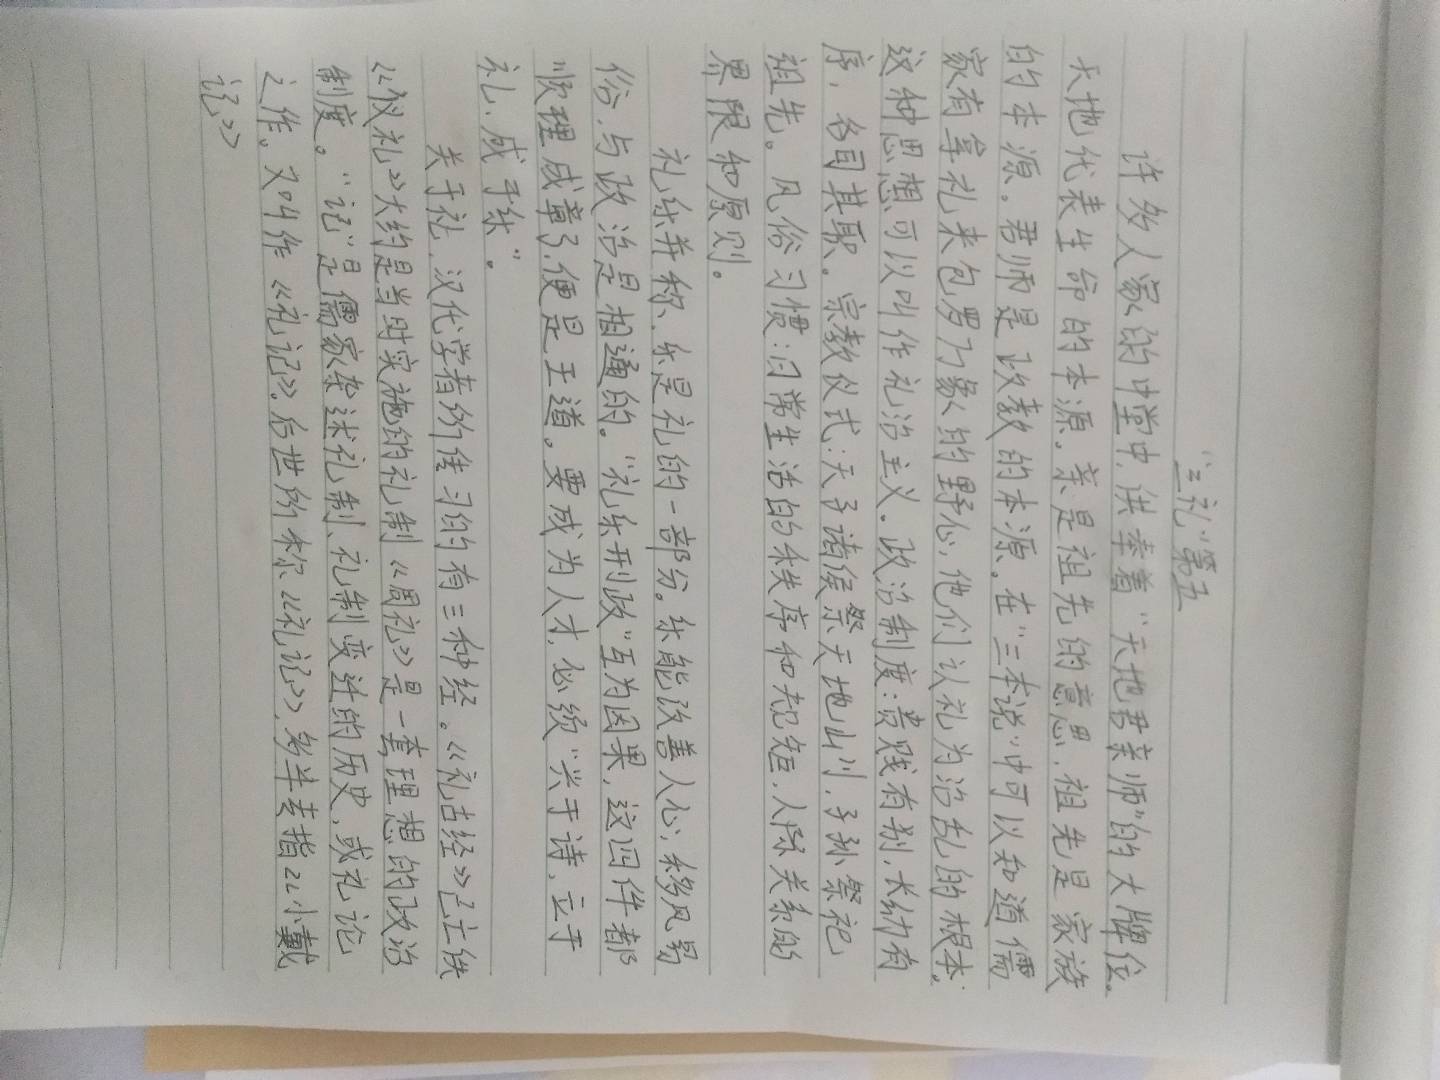 “三礼”第五
许多人家的中堂中，供奉着“天地君亲师”的大牌位。
天地代表生命的本源。亲是祖先的意思，祖先是家族
的本源。君师是政教的本源。在“三本说”中可以知道儒
家有拿礼来包罗万象的野心，他们认礼为治乱的根本；
这种思想可以叫作礼治主义。政治制度：贵贱有别，长幼有
序，各司其职。宗教仪式：天子诸侯祭天地山川，子孙祭祀
祖先。风俗习惯：日常生活的秩序和规矩，人际关系的
界限和原则。
礼乐并称，乐是礼的一部分。乐能改善人心，移风易
俗，与政治是相通的。“礼乐刑政”互为因果，这四件都
顺理成章了，便是王道。要成为人才，必须“兴于诗，立于
礼，成于乐”。
关于礼，汉代学者所传习的有三种经。《礼古经》已亡佚
《仪礼》大约是当时实施的礼制《周礼》是一套理想的政治
制度。“记”是儒家杂述礼制、礼制变迁的历史，或礼论
之作。又叫作《礼记》。后世所称《礼记》，多半专指《小戴
记》